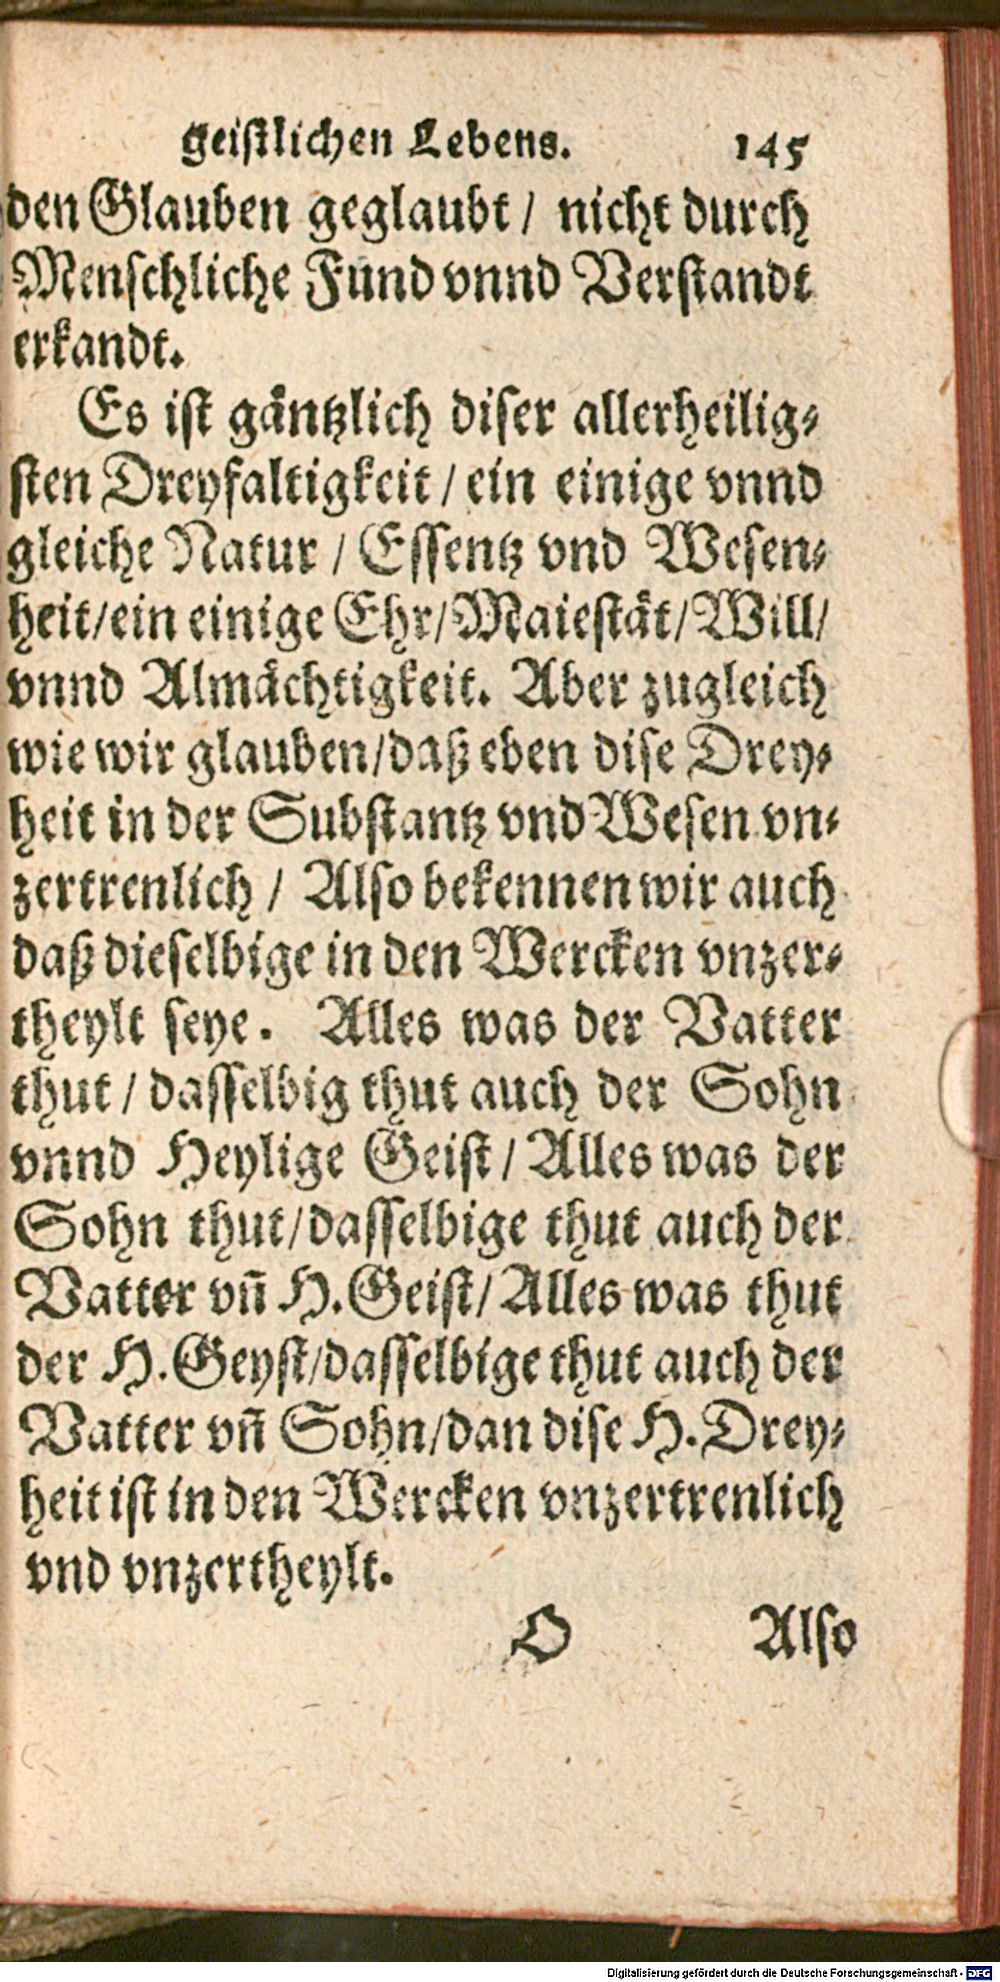 geistlichen Lebens. 145
den Glauben geglaubt / nicht durch
Menschliche Fund vnnd Verstandt
erkandt.
Es ist gäntzlich diser allerheilig-
sten Dreyfaltigkeit / ein einige vnnd
gleiche Natur / Essentz vnd Wesen-
heit/ein einige Ehr/Maiestät/Will/
vnnd Almächtigkeit. Aber zugleich
wie wir glauben/daß eben dise Drey-
heit in der Substantz vnd Wesen vn-
zertrenlich / Also bekennen wir auch
daß dieselbige in den Wercken vnzer-
theylt seye. Alles was der Vatter
thut / dasselbig thut auch der Sohn
vnnd Heylige Geist / Alles was der
Sohn thut/dasselbige thut auch der
Vatter vn̄ H. Geist/Alles was thut
der H. Geyst/dasselbige thut auch der
Vatter vn̄ Sohn/dan dise H. Drey-
heit ist in den Wercken vnzertrenlich
vnd vnzertheylt.
O Also
Digitalisierung gefördert durch die Deutsche Forschungsgemeinschaft - DFG